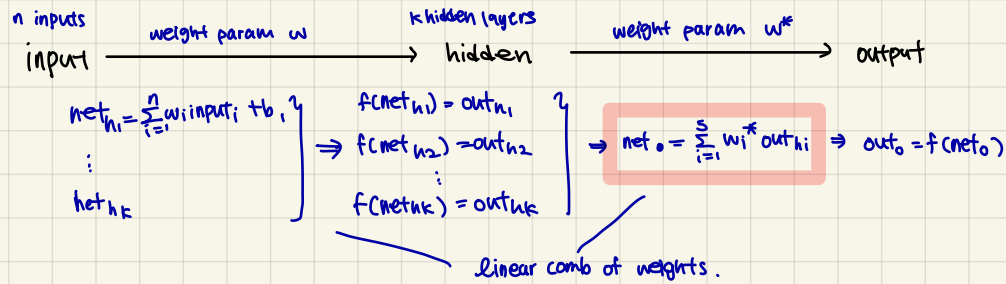 n inputs
k hidden layers
input
weight param w
hidden
weight param w*
output
net_h1 = Σ_{i=1}^{n} wi input_i + b_1
⋮
net_hk
⇒
f(net_h1) = out_h1
f(net_h2) = out_h2
⋮
f(net_hk) = out_hk
⇒ net_o = Σ_{i=1}^{5} w_i* out_hi ⇒ out_o = f(net_o)
linear comb of weights.